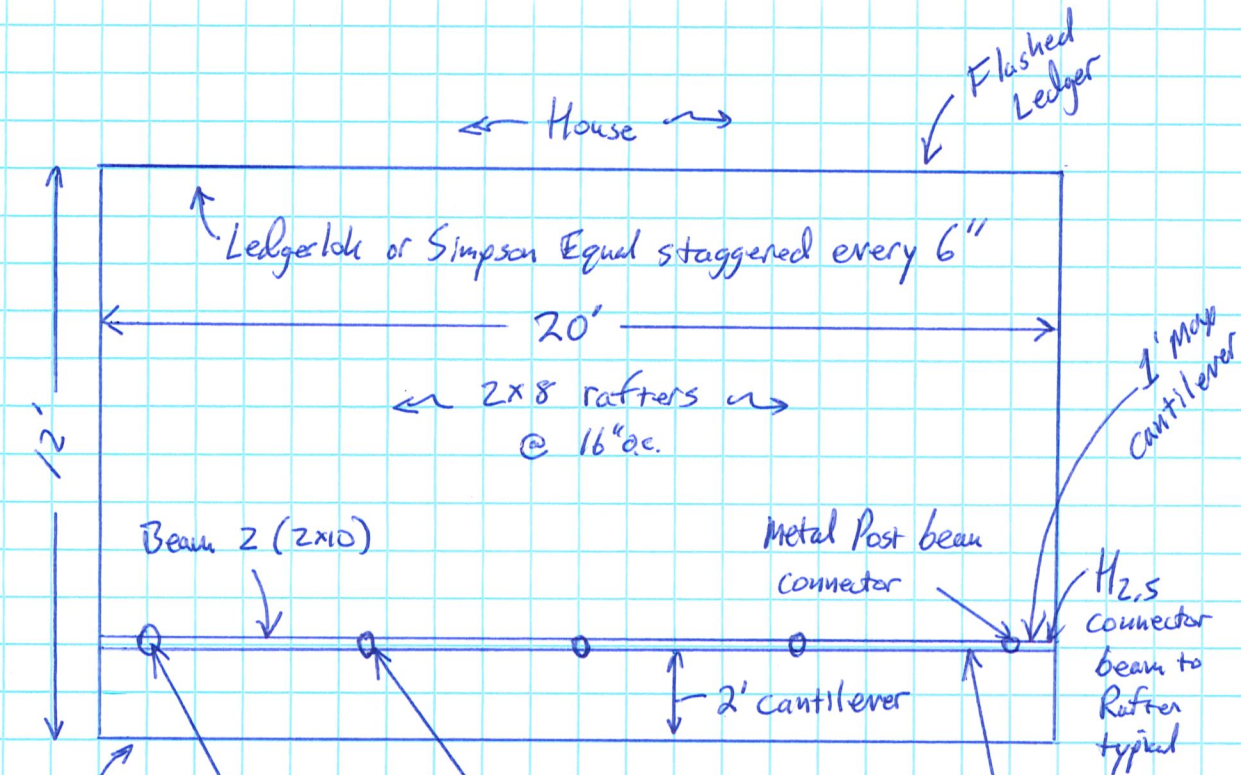 Flashed
Ledger
House
Ledgerlok or Simpson Equal staggered every 6"
20'
1' Max
cantilever
12'
2x8 rafters
@ 16"o.c.
Beam 2 (2x10)
Metal Post beam
connector
H2.5
connector
beam to
Rafter
typical
2' cantilever